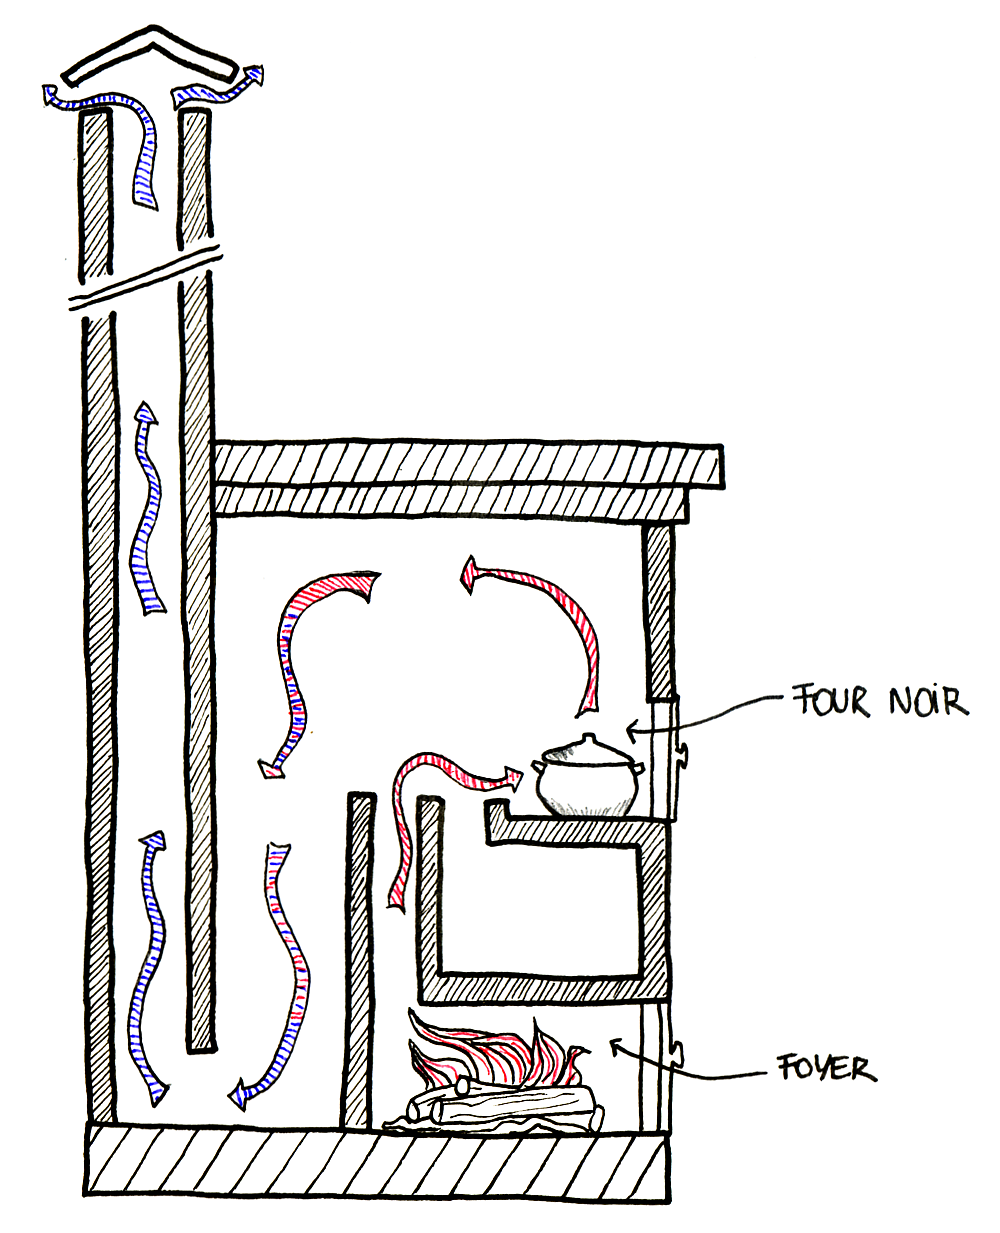 FOUR NOiR
FOYER